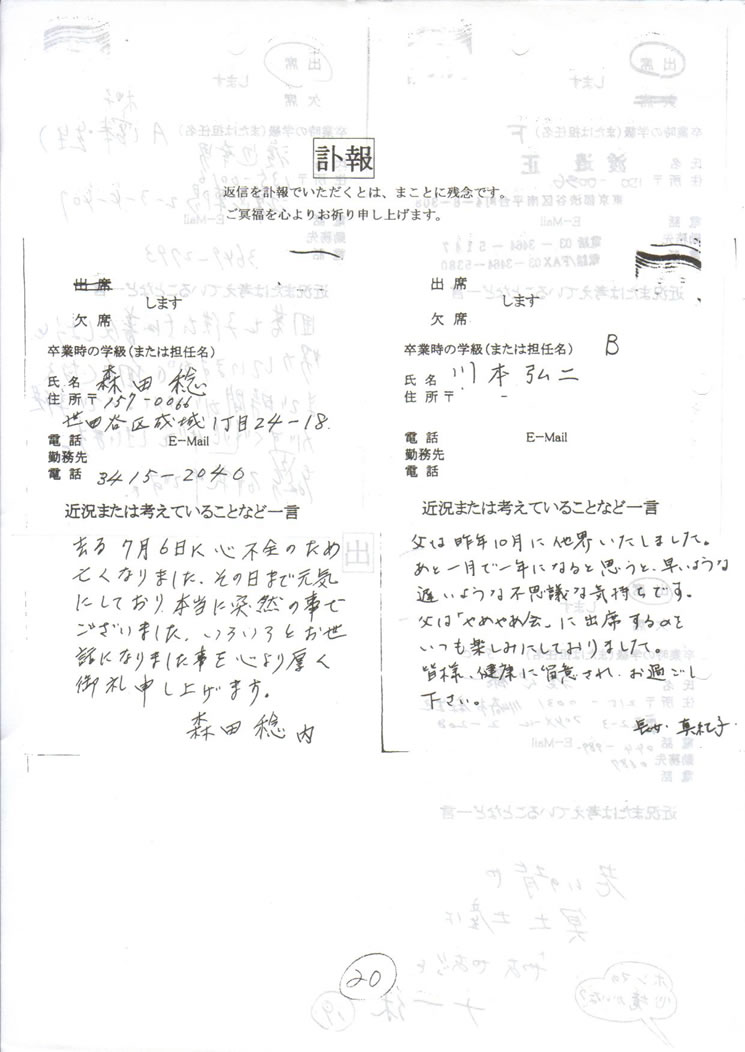 訃報
返信を訃報でいただくとは、まことに残念です。
ご冥福を心よりお祈り申し上げます。
出席
します
欠席
卒業時の学級(または担任名)
氏名 森田 稔
住所〒 157-0066
世田谷区成城1丁目24-18.
電話 E-Mail
勤務先
電話 3415-2040
近況または考えていることなど一言
去る7月6日に心不全のため
亡くなりました、その日まで元気
にしており、本当に突然の事で
ございました、いろいろとお世
話になりました事を心より厚く
御礼申し上げます。
森田 稔 内
出席
します
欠席
卒業時の学級(または担任名) B
氏名 川本 弘二
住所〒 -
電話 E-Mail
勤務先
電話
近況または考えていることなど一言
父は昨年10月に他界いたしました。
あと一月で一年になると思うと、早いような
遅いような不思議な気持ちです。
父は「やめやめ会」に出席するのを
いつも楽しみにしておりました。
皆様、健康に留意され、お過ごし
下さい。
長女
20